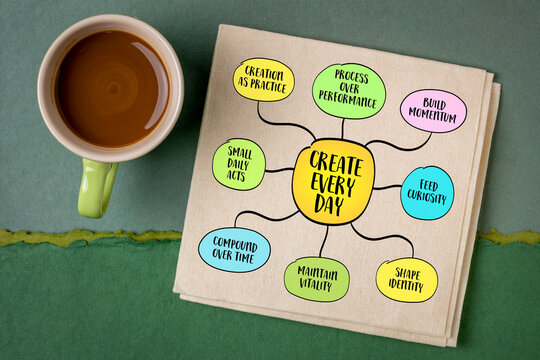 CREATION
AS PRACTICE
PROCESS
OVER
PERFORMANCE
BUILD
MOMENTUM
SMALL
DAILY
ACTS
CREATE
EVERY
DAY
FEED
CURIOSITY
COMPOUND
OVER TIME
MAINTAIN
VITALITY
SHAPE
IDENTITY